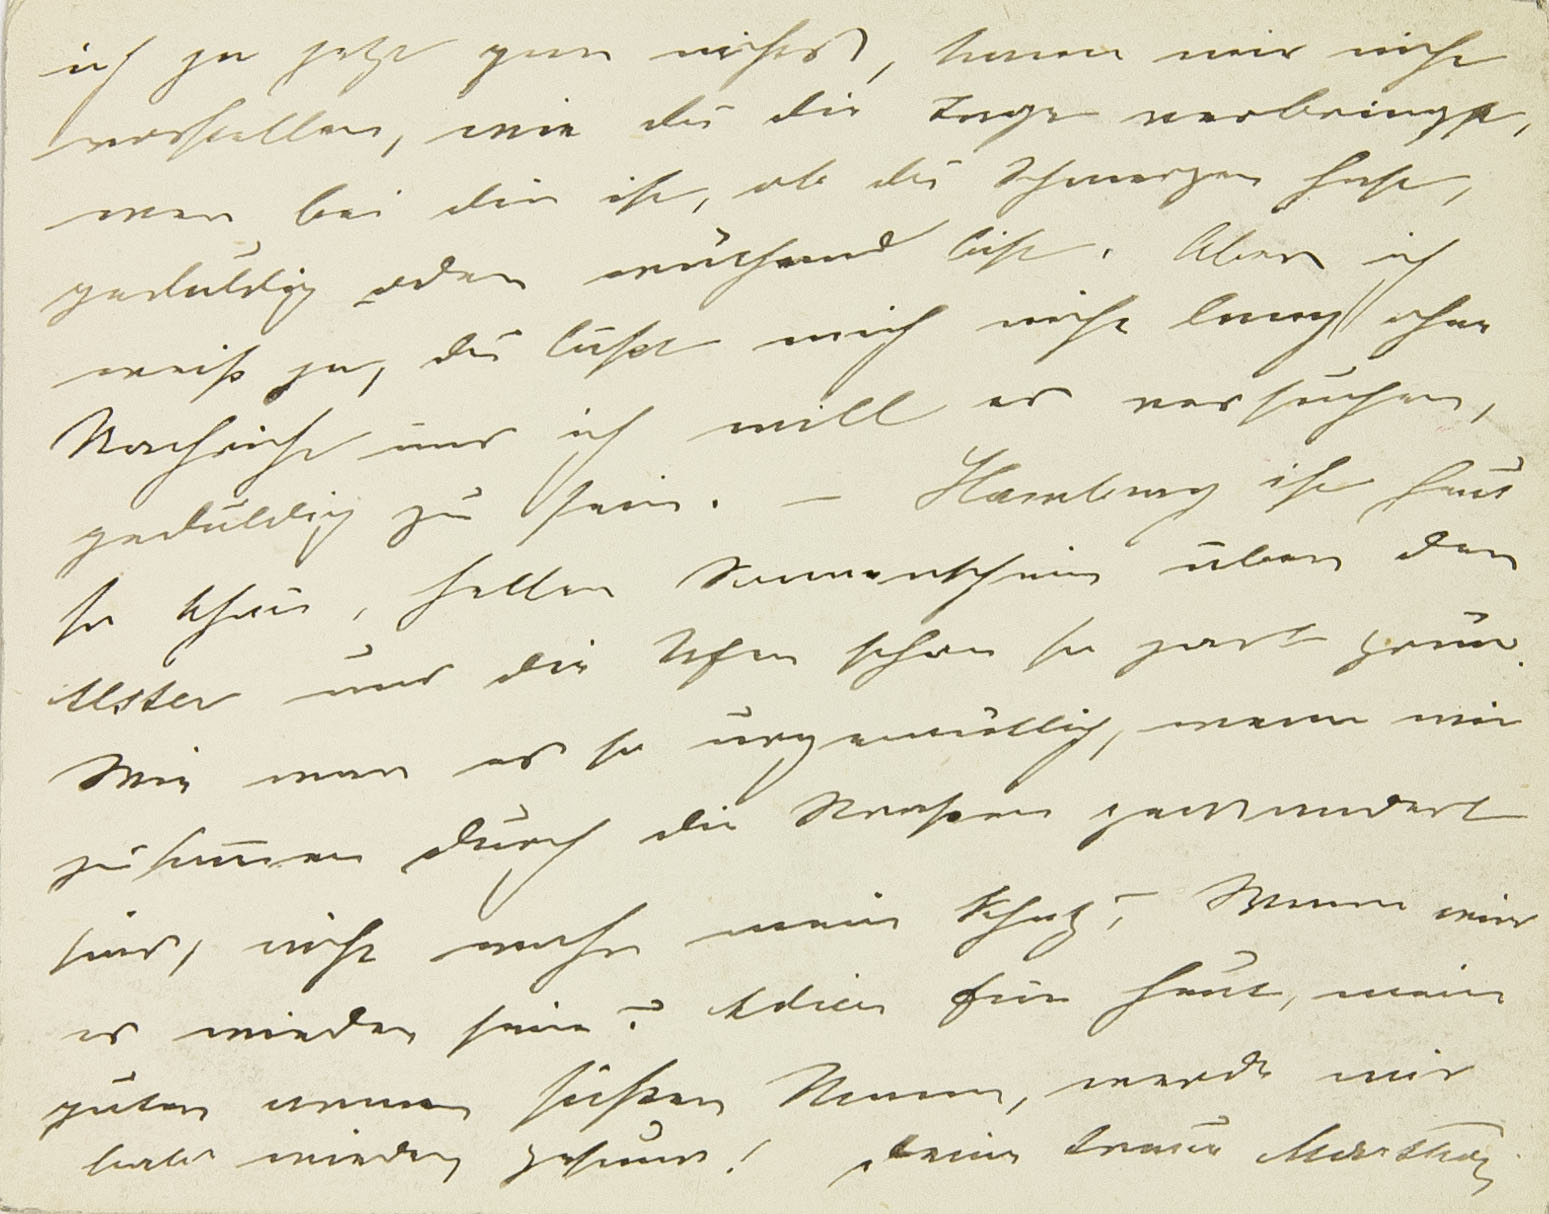 ich ja jetzt gar nichts, kann mir nicht
vorstellen, wie du die Tage verbringst,
wer bei dir ist, ob du Schmerzen hast,
geduldig oder wütend bist. Aber ich
weiß ja, du läßt mich nicht lang ohne
Nachricht und ich will es versuchen,
geduldig zu sein. – Hamburg ist heut
so schön, heller Sonnenschein über der
Alster und die Ufer schon so zart grün.
Wie war es so urgemütlich, wenn wir
zusammen durch die Strassen gewandert
sind, nicht wahr mein Schatz? Wann wird
es wieder sein? Adieu für heut, mein
guter armer süßer Mann, werde mir
bald wieder gesund! Deine treue